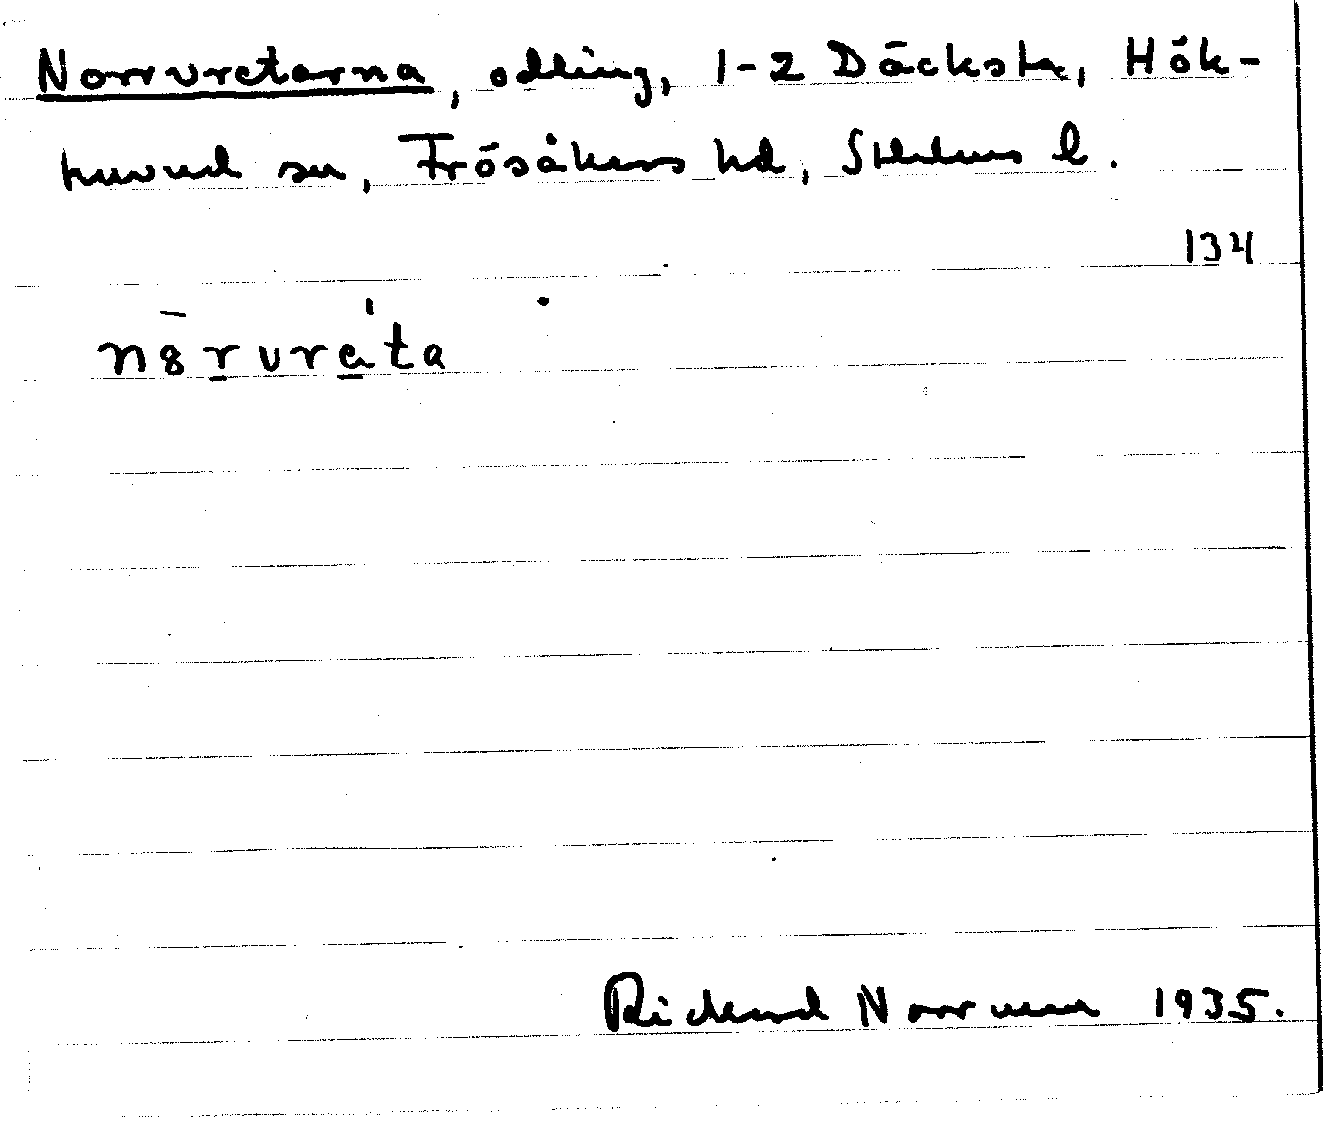 Norrvretarna, odling, 1-2 Däcksta, Hök-
huvud sn, Frösåkers hd, Sthlms l.
134
nȣrvrata
Richard Norrman 1935.